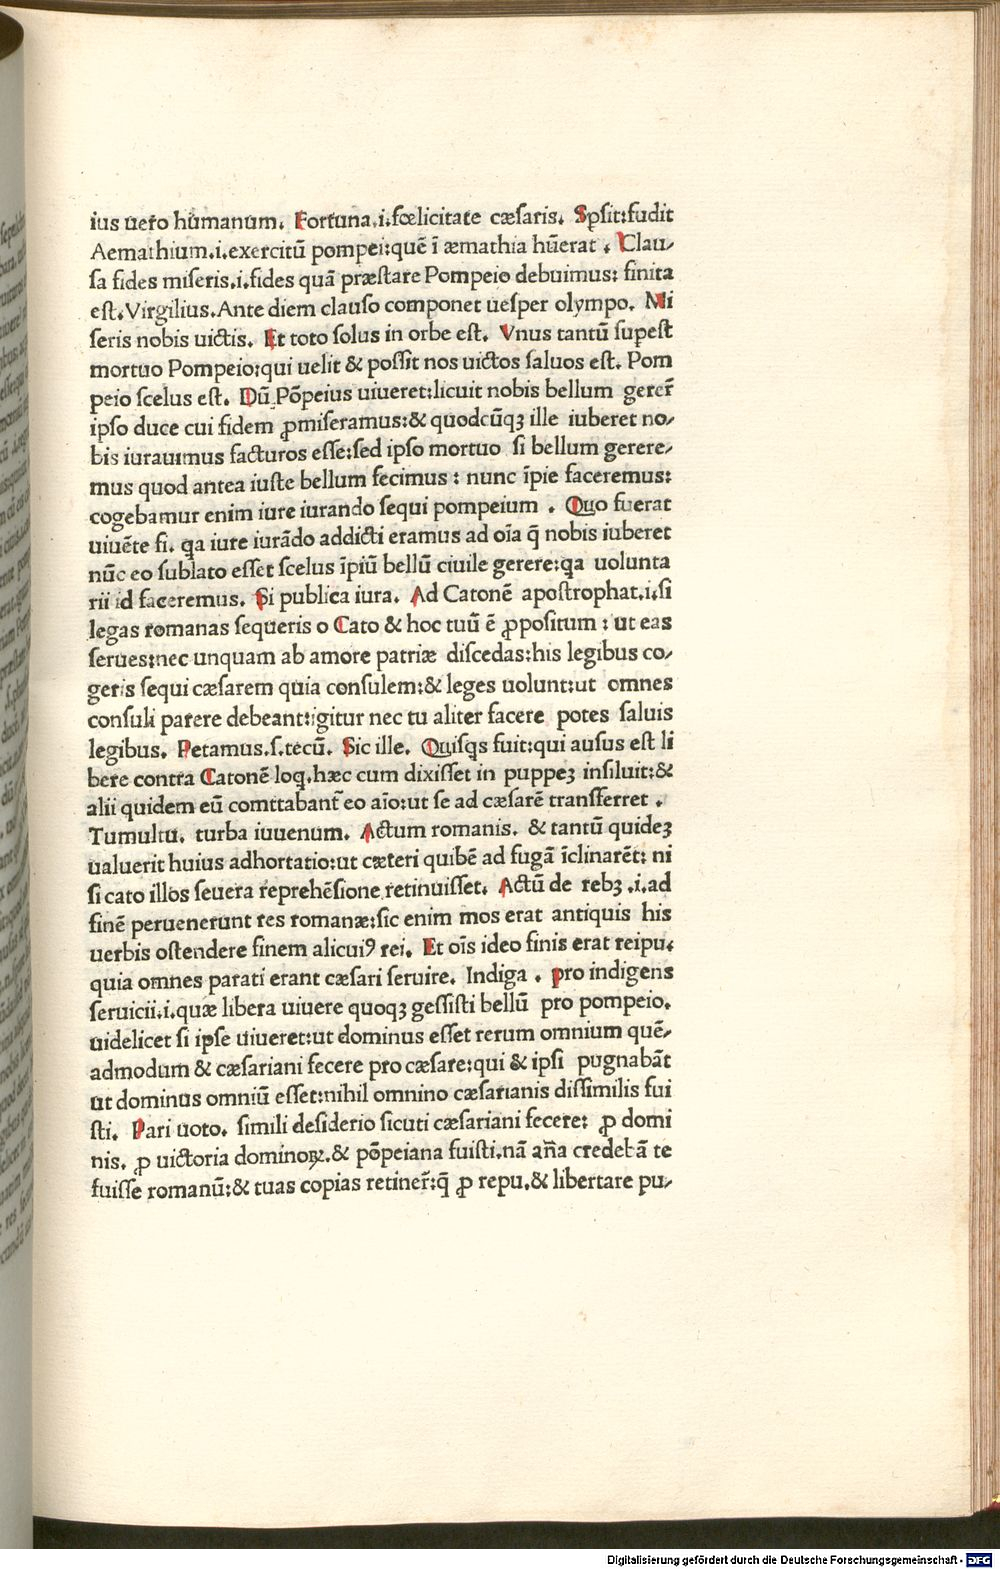 ius uero humanum. Fortuna.i.fœlicitate cæsaris. Sꝑsit:fudit
Aemathium.i.exercitū pompei:quē ī æmathia hūerat . Clau-
sa fides miseris.i.fides quā præstare Pompeio debuimus: finita
est.Virgilius.Ante diem clauso componet uesper olympo. Mi
seris nobis uictis. Et toto solus in orbe est. Vnus tantū supest
mortuo Pompeio:qui uelit & possit nos uictos saluos est. Pom
peio scelus est. Dū Pōpeius uiueret:licuit nobis bellum gerer̄
ipso duce cui fidem ꝓmiseramus:& quodcūqꝫ ille iuberet no-
bis iurauimus facturos esse:sed ipso mortuo si bellum gerere-
mus quod antea iuste bellum fecimus : nunc īpie faceremus:
cogebamur enim iure iurando sequi pompeium . Quo fuerat
uiuēte si. qa iure iurādo addicti eramus ad oīa q̄ nobis iuberet
nūc eo sublato esset scelus īpiū bellū ciuile gerere:qa uolunta
rii id faceremus. Si publica iura. Ad Catonē apostrophat.i.si
legas romanas sequeris o Cato & hoc tuū ē ꝓpositum : ut eas
serues:nec unquam ab amore patriæ discedas:his legibus co-
geris sequi cæsarem quia consulem:& leges uolunt:ut omnes
consuli parere debeant:igitur nec tu aliter facere potes saluis
legibus. Petamus.s.tecū. Sic ille. Quisqs fuit:qui ausus est li
bere contra Catonē loq.hæc cum dixisset in puppeꝫ insiluit:&
alii quidem eū comttabant̄ eo aīo:ut se ad cæsarē transferret .
Tumultu. turba iuuenum. Actum romanis. & tantū quideꝫ
ualuerit huius adhortatio:ut cæteri quibē ad fugā īclinarēt: ni
si cato illos seuera reprehēsione retinuisset. Actū de rebꝫ .i.ad
finē peruenerunt res romanæ:sic enim mos erat antiquis his
uerbis ostendere finem alicuiꝰ rei. Et oīs ideo finis erat reipu.
quia omnes parati erant cæsari seruire. Indiga . pro indigens
seruicii.i.quæ libera uiuere quoqꝫ gessisti bellū pro pompeio.
uidelicet si ipse uiueret:ut dominus esset rerum omnium quē-
admodum & cæsariani fecere pro cæsare:qui & ipsi pugnabāt
ut dominus omniū esset:nihil omnino cæsarianis dissimilis fui
sti. Pari uoto. simili desiderio sicuti cæsariani fecere: ꝓ domi
nis. ꝓ uictoria dominoꝝ.& pōpeiana fuisti.nā añа credebā te
fuisse romanū:& tuas copias retiner̄:q̄ ꝓ repu.& libertare pu-
Digitalisierung gefördert durch die Deutsche Forschungsgemeinschaft - DFG